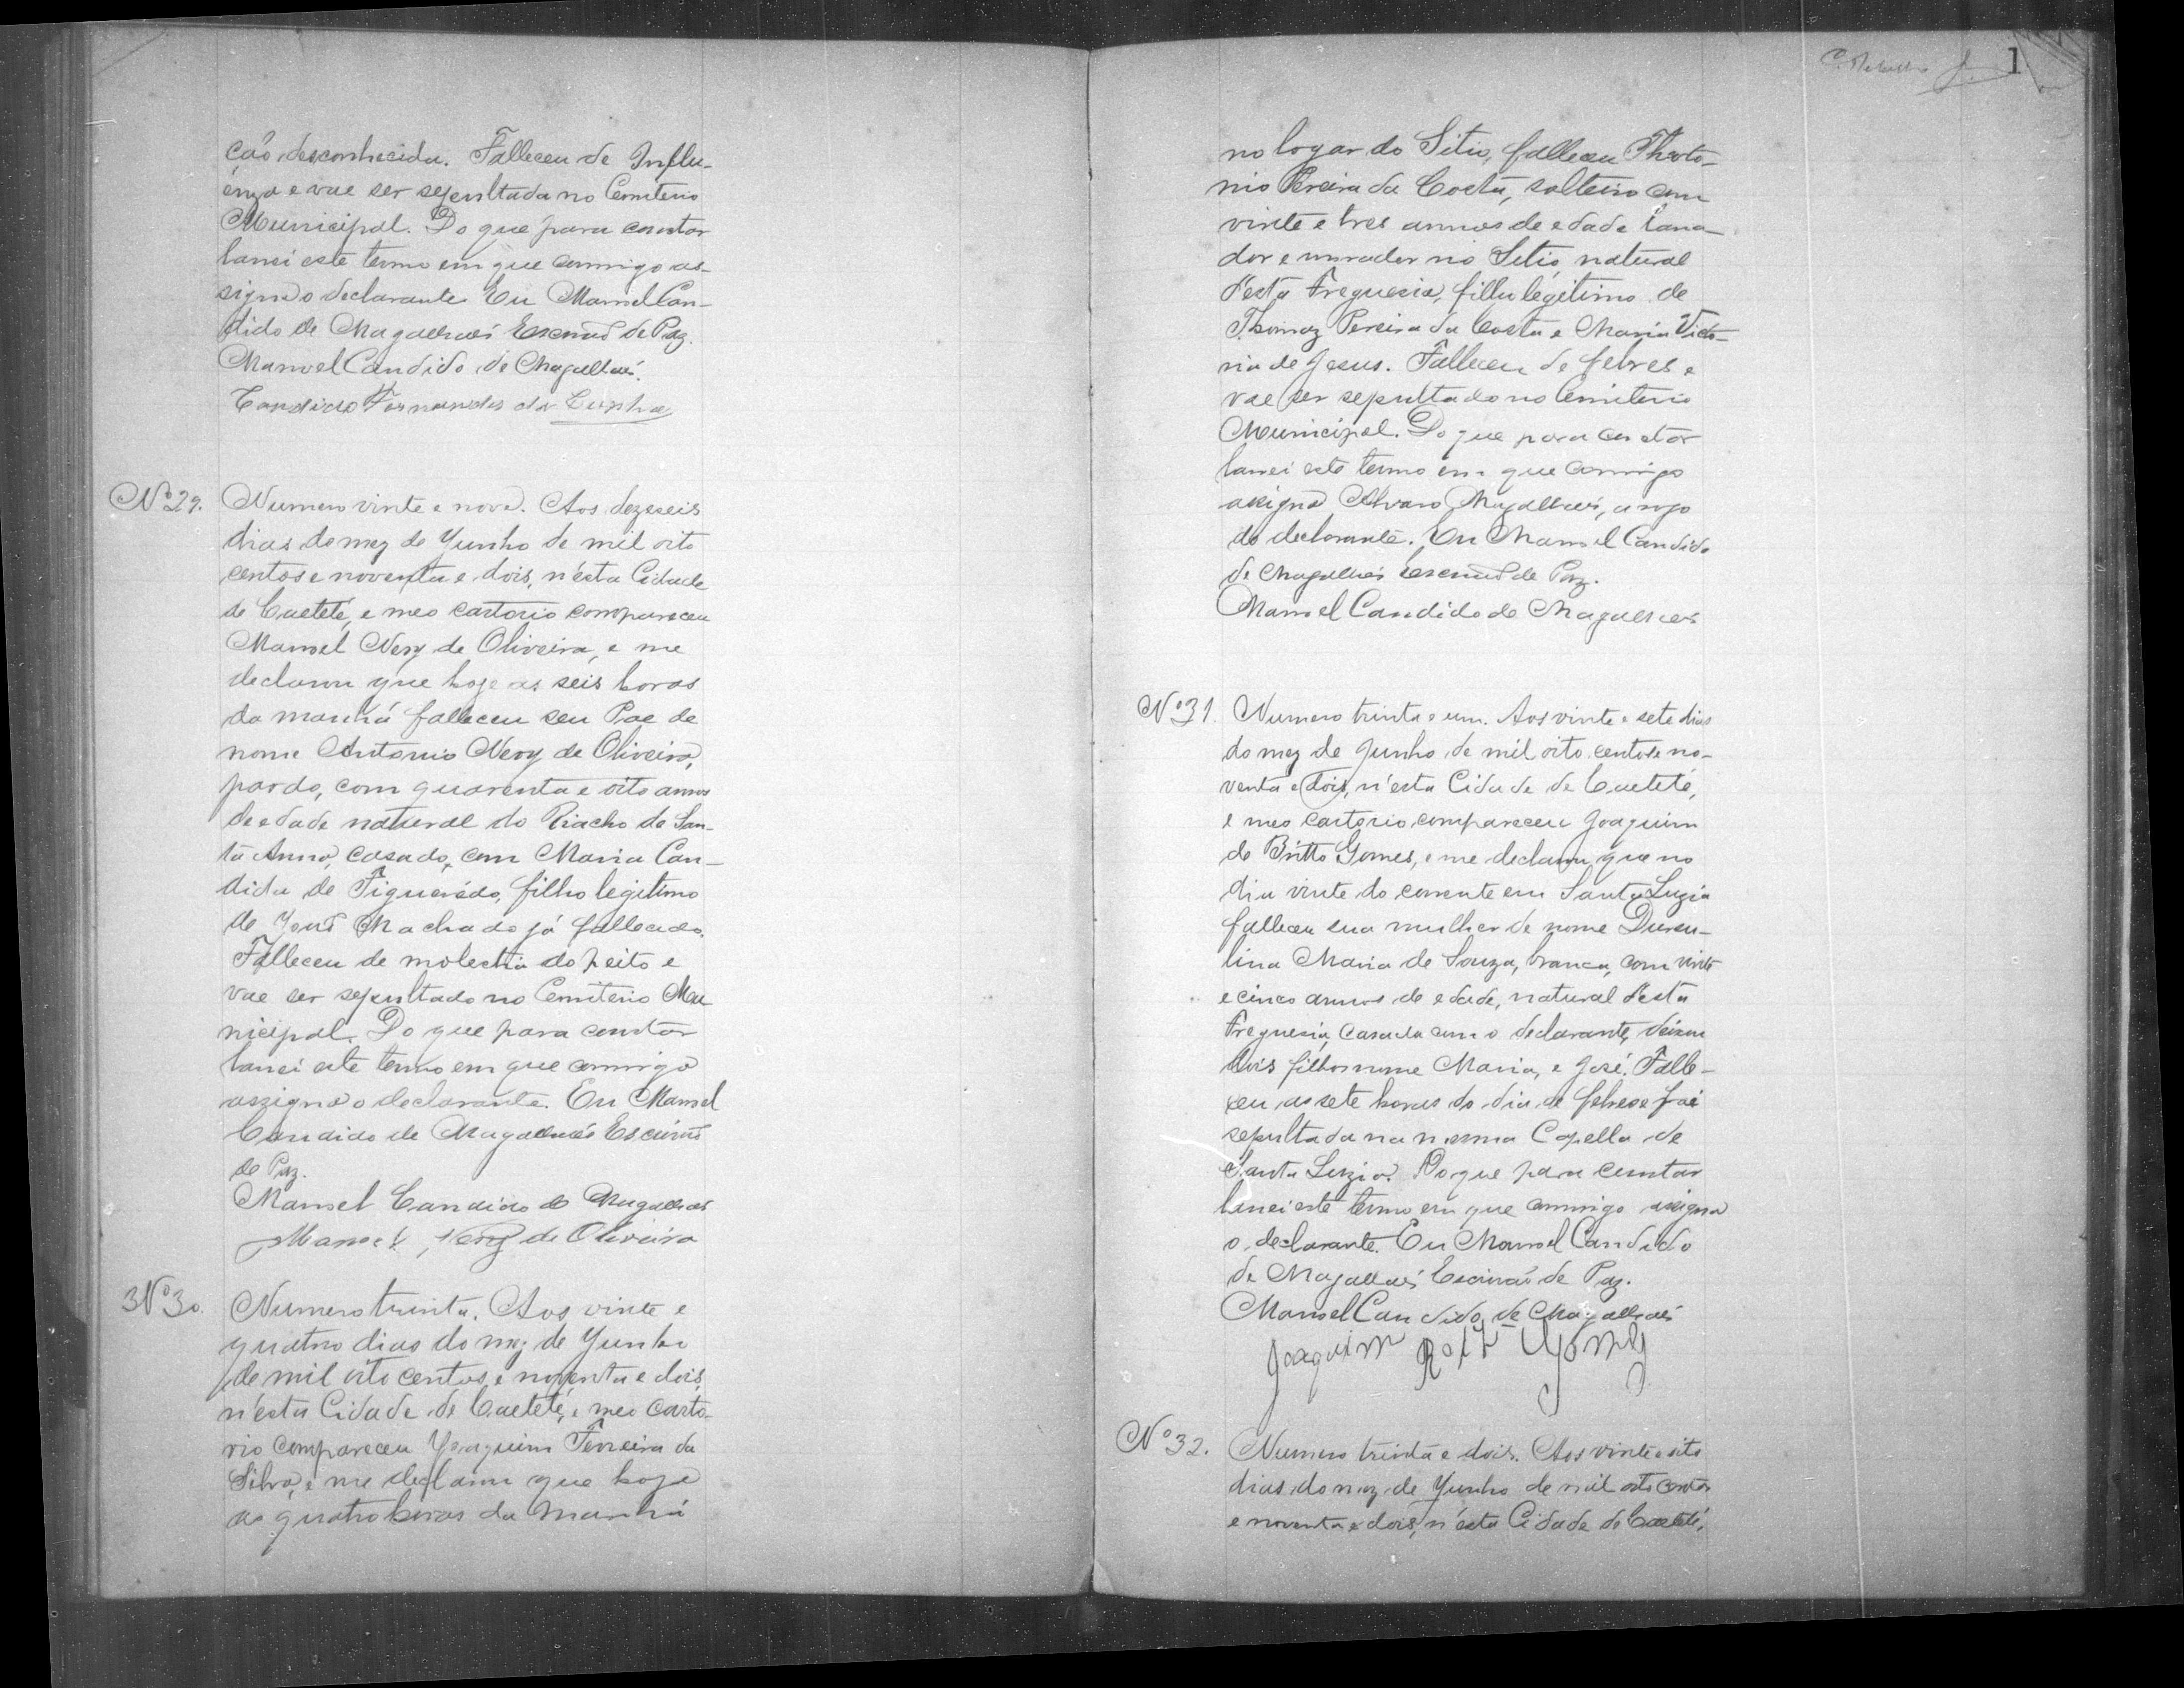 cão desconhecida. Falleceu de Influ-
enza e vae ser sepultada no Cemiterio
Municipal. Do que para constar
lancei este termo em que commigo as-
signa o declarante. Eu Manoel Can-
dido de Magalhães Escrivão de Paz.
Manoel Candido de Magalhães.
Candido Fernandes da Cunha
Nº 29. Numero vinte e nove. Aos dezeseis
dias do mez de Junho de mil oito
centos e noventa e dois, n'esta Cidade
de Caeteté, e meo cartorio compareceu
Manoel Nery de Oliveira, e me
declarou que hoje as seis horas
da manhã falleceu seu Pae de
nome Antonio Nery de Oliveira,
pardo, com quarenta e oito annos
de edade natural do Riacho de San-
ta Anna, casado, com Maria Can-
dida de Figuerêdo, filho legitimo
de José Machado já fallecido.
Falleceu de molestia do peito e
vae ser sepultado no Cemiterio Mu
nicipal. Do que para constar
lancei este termo em que commigo
assigna o declarante. Eu Manoel
Candido de Magalhães Escrivão
de Paz.
Manoel Candido de Magalhães
Manoel Nery de Oliveira
Nº 30. Numero trinta. Aos vinte e
quatro dias do mez de Junho
de mil oito centos e noventa e dois,
n'esta Cidade de Caeteté, e meo carto-
rio compareceu Joaquim Ferreira da
Silva, e me declarou que hoje
as quatro horas da manhã
1
no logar do Sitio, falleceu Theoto-
nio Pereira da Costa, solteiro com
vinte e tres annos de edade lavra-
dor e morador no Sitio natural
d'esta Freguesia, filho legitimo de
Thomaz Pereira da Costa e Maria Victo-
ria de Jesus. Falleceu de febres e
vae ser sepultado no Cemiterio
Municipal. Do que para constar
lancei este termo em que commigo
assigna Alvaro Magalhães, a rogo
do declarante. Eu Manoel Candido
de Magalhães Escrivão de Paz.
Manoel Candido de Magalhães
Nº 31. Numero trinta e um. Aos vinte e sete dias
do mez de Junho de mil oito centos e no-
venta e dois, n'esta Cidade de Caeteté,
e meo cartorio compareceu Joaquim
de Britto Gomes, e me declarou que no
dia vinte do corrente em Santa Luzia
falleceu sua mulher de nome Durva-
lina Maria de Souza, branca, com vinte
e cinco annos de edade, natural d'esta
Freguesia, casada com o declarante, deixou
dois filhos nome Maria, e José. Falle-
ceu as sete horas do dia de febres e foi
sepultada na mesma Capella de
Santa Luzia. Do que para constar
lancei este termo em que commigo assigna
o declarante. Eu Manoel Candido
de Magalhães Escrivão de Paz.
Manoel Candido de Magalhães
Joaquim Gomes
Nº 32. Numero trinta e dois. Aos vinte e oito
dias do mez de Junho de mil oito centos
e noventa e dois, n'esta Cidade de Caeteté,